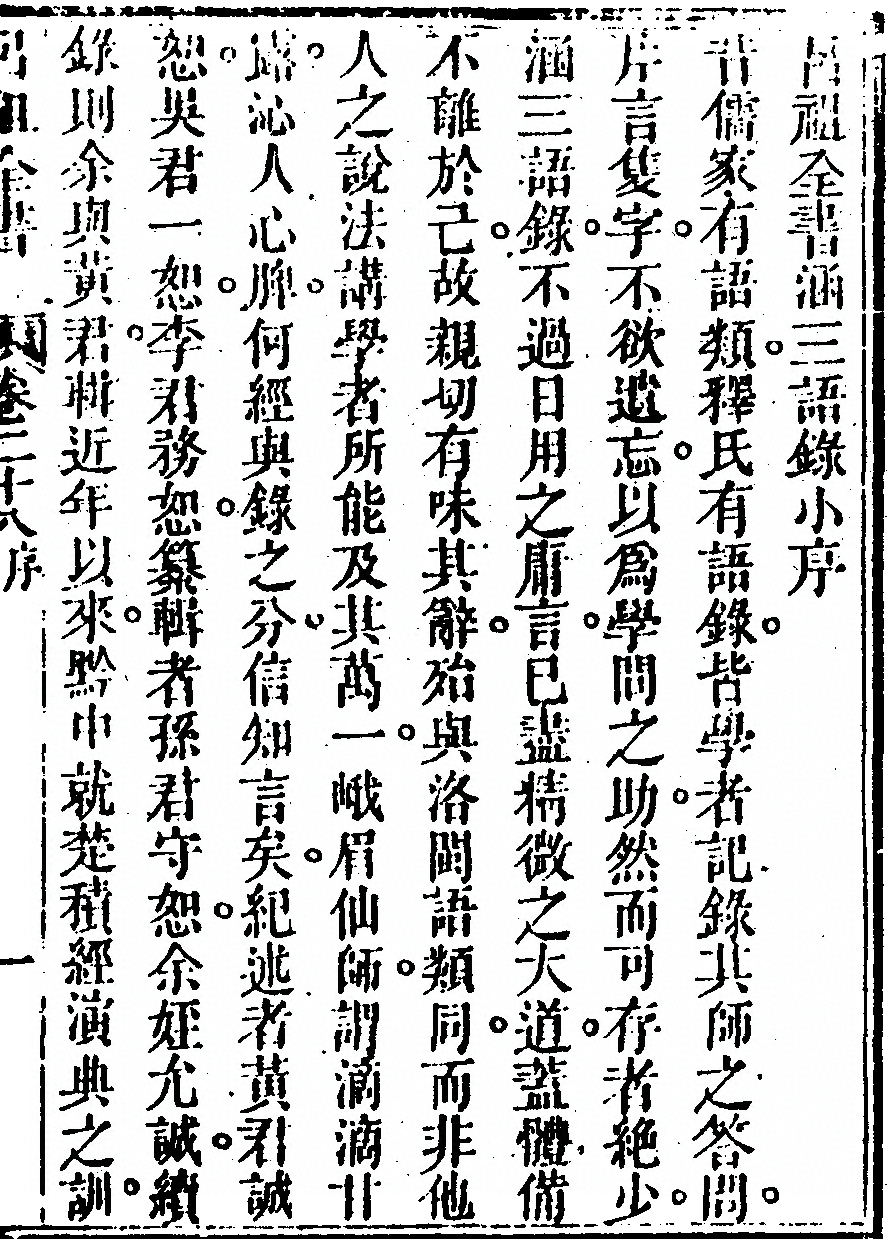 呂祖全書涵三語錄小序
昔儒家有語類。釋氏有語錄。皆學者記錄其師之答問。
片言隻字。不欲遺忘。以爲學問之助。然而可存者絶少。
涵三語錄。不過日用之庸言。已盡精微之大道。蓋體備
不離於己。故親切有味。其辭殆與洛閩語類同。而非他
人之說法講學者所能及其萬一。峨眉仙師。謂滴滴甘
露。沁人心脾。何經與錄之分。信知言矣。紀述者黃君誠
恕。吳君一恕。李君務恕。纂輯者孫君守恕。余姪允誠。續
錄則余與黃君。輯近年以來。黔中就楚積經演典之訓。
呂祖全書　卷二十八序　一